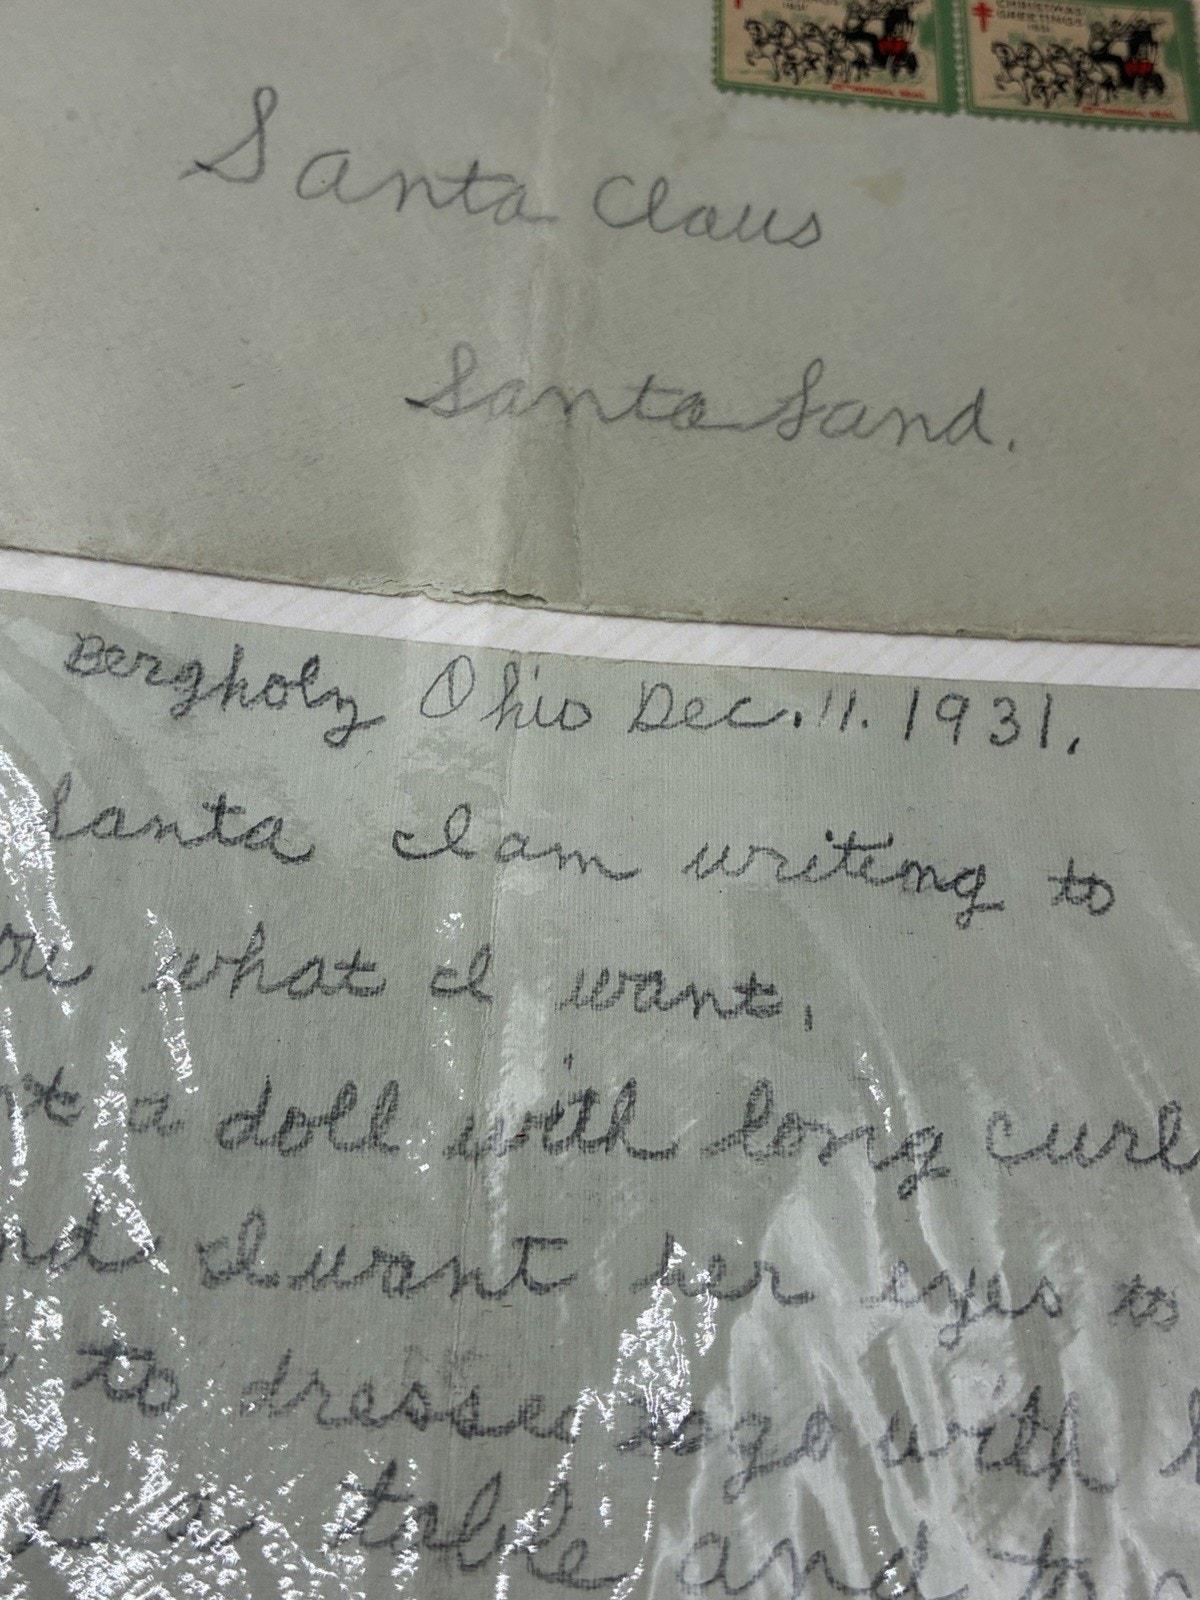 CHRISTMAS
GREETINGS
1931
1931
Santa Claus
Santa Land.
Bergholz Ohio Dec. 11. 1931.
Santa I am writing to
ou what I want.
nt a doll with long curl
nd I want her eyes to
to dresses to go with
a table and